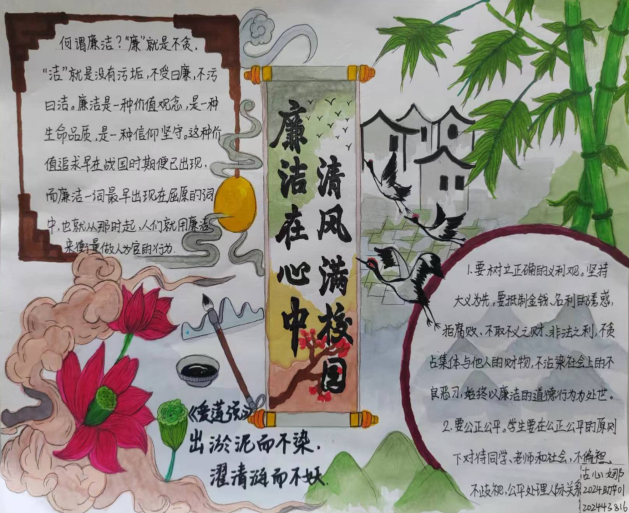 何谓廉洁？"廉"就是不贪，
"洁"就是没有污垢，不受曰廉，不污
曰洁。廉洁是一种价值观念，是一种
生命品质，是一种信仰坚守。这种价
值追求早在战国时期便已出现，
而廉洁一词最早出现在屈原的词
中，也就从那时起，人们就用廉洁
来衡量做人为官的行为
廉洁在心中
清风满校园
《爱莲说》
出淤泥而不染，
濯清涟而不妖.
1.要树立正确的义利观。坚持
大义为先，要抵制金钱、名利的诱惑，
拒腐败、不取不义之财、非法之利，不贪
占集体与他人的财物，不沾染社会上的不
良恶习，始终以廉洁的道德行为为处世。
2.要公正公平。学生要在公正公平的原则
下对待同学、老师和社会，不偏袒
不歧视，公平处理人际关系